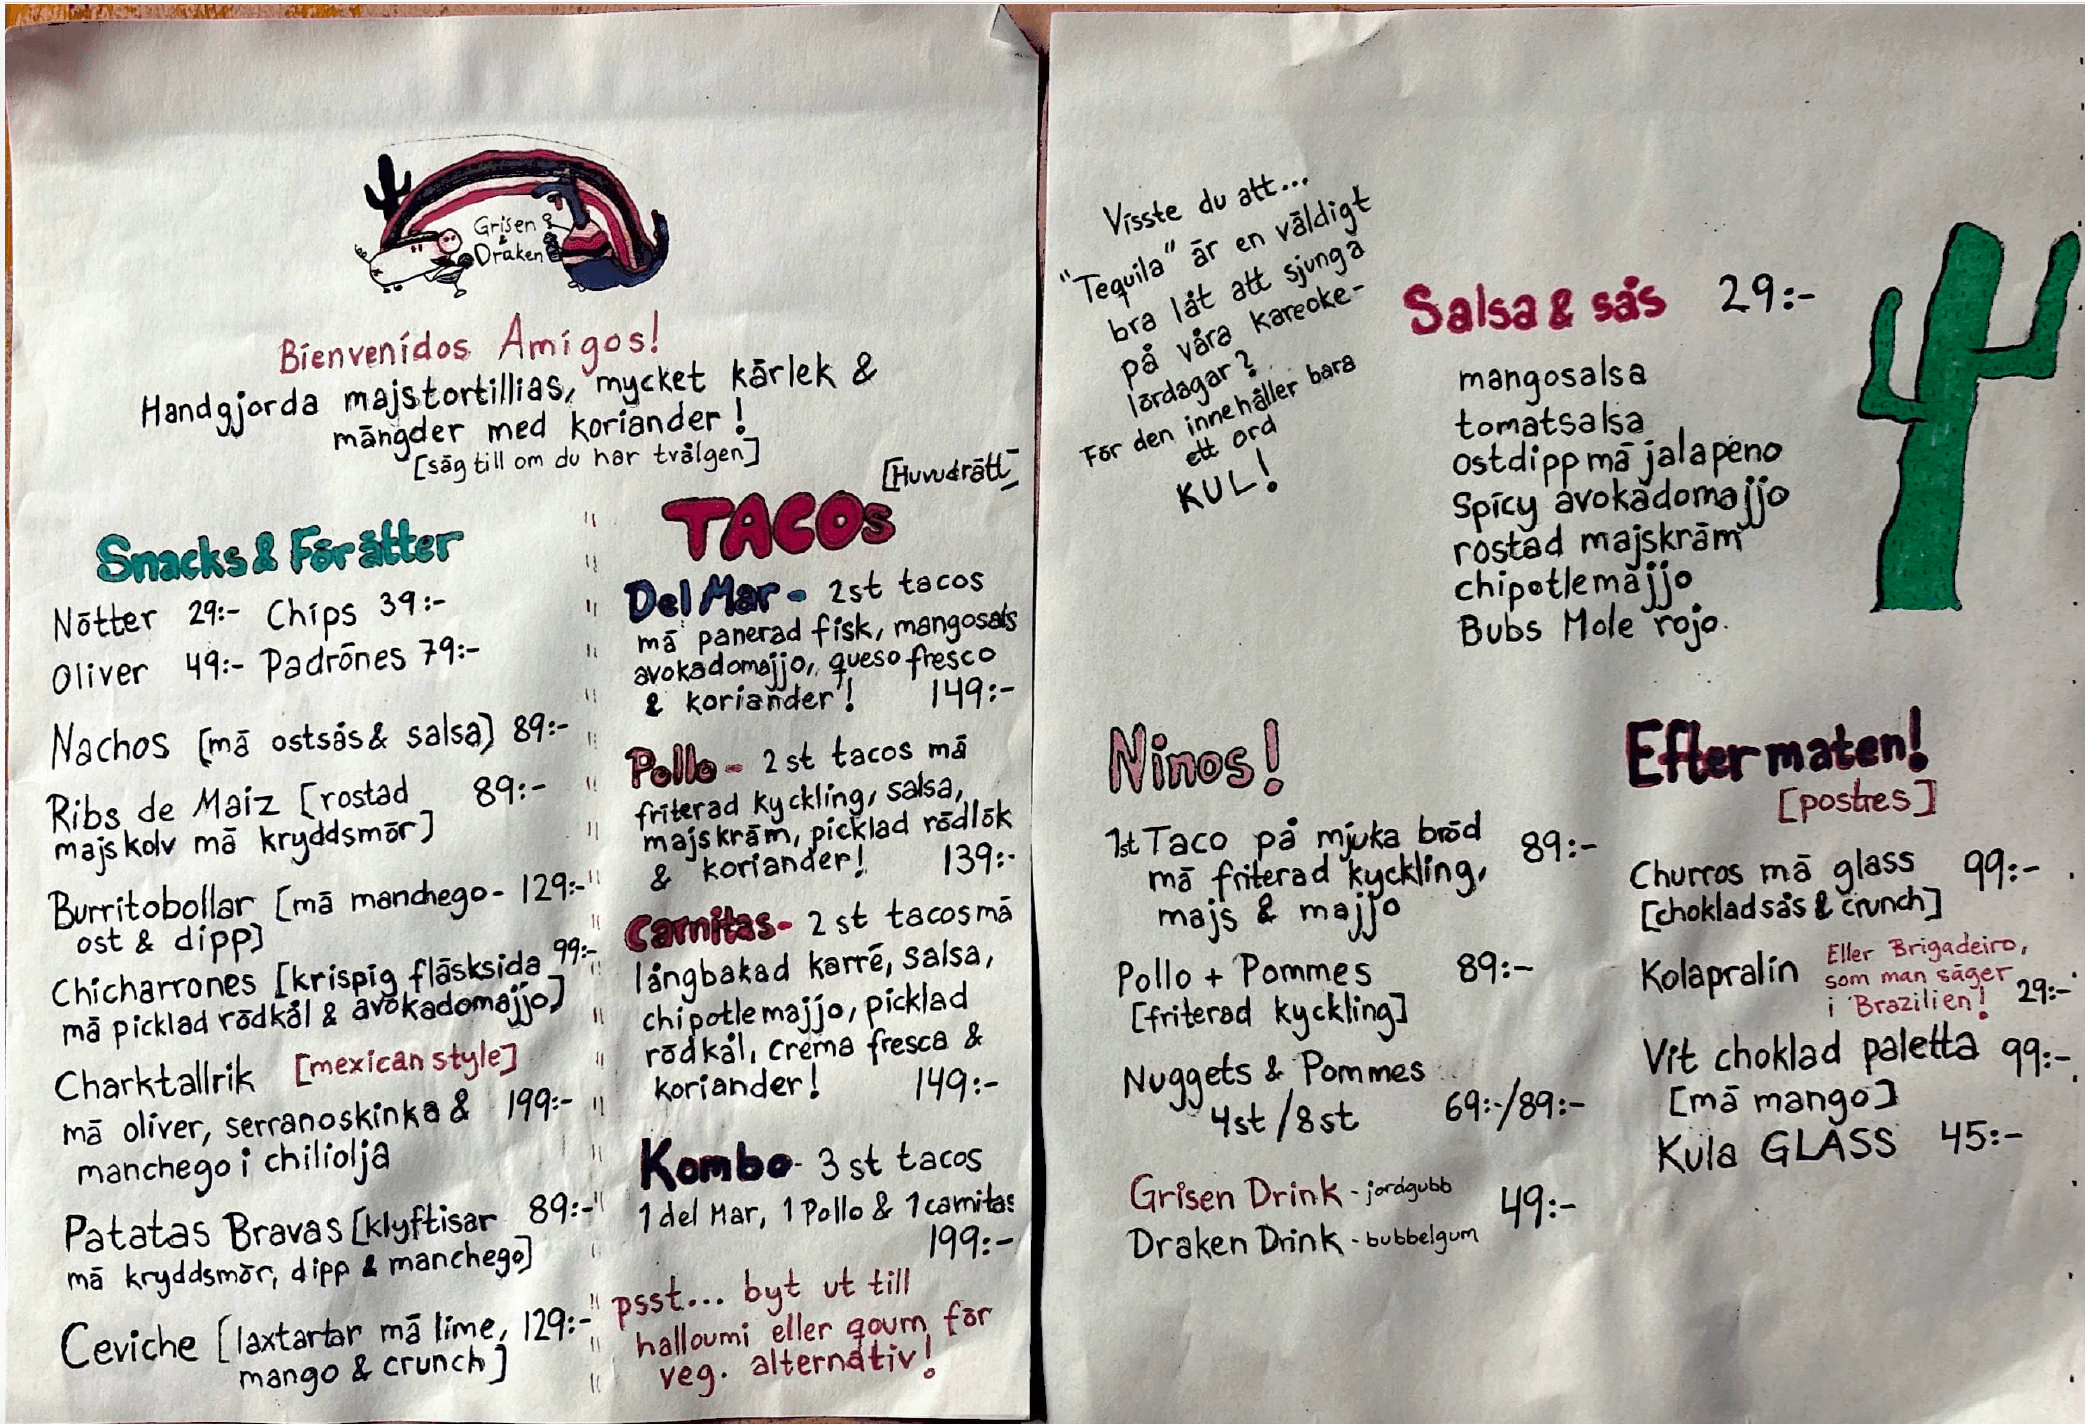 Grisen
&
Draken
Bienvenidos Amigos!
Handgjorda majstortillias, mycket kärlek &
mängder med koriander!
[säg till om du har tvålgen]
Snacks & Förätter
Nötter 29:- Chips 39:-
Oliver 49:- Padrōnes 79:-
Nachos [mä ostsås & salsa] 89:-
Ribs de Maiz [rostad 89:-
majskolv mä kryddsmör]
Burritobollar [mä manchego- 129:-
ost & dipp]
Chicharrones [krispig fläsksida 99:-
mä picklad rödkål & avokadomajjo]
Charktallrik [mexican style]
mä oliver, serranoskinka & 199:-
manchego i chiliolja
Patatas Bravas [klyftisar 89:-
mä kryddsmör, dipp & manchego]
Ceviche [laxtartar mä lime, 129:-
mango & crunch]
[Huvudrätt]
TACOs
Del Mar - 2st tacos
mä panerad fisk, mangosals
avokadomajjo, queso fresco
& koriander! 149:-
Pollo - 2st tacos mä
friterad kyckling, salsa,
majskräm, picklad rödlök
& koriander! 139:-
Carnitas - 2 st tacos mä
långbakad karré, salsa,
chipotlemajjo, picklad
rödkål, crema fresca &
koriander! 149:-
Kombo - 3 st tacos
1 del Mar, 1 Pollo & 1 carnitas
199:-
psst... byt ut till
halloumi eller qourn för
veg. alternativ!
Visste du att...
"Tequila" är en väldigt
bra låt att sjunga
på våra kareoke-
lördagar?
För den innehåller bara
ett ord
KUL!
Salsa & sås 29:-
mangosalsa
tomatsalsa
ostdipp mä jalapeno
Spicy avokadomajjo
rostad majskräm
chipotlemajjo
Bubs Mole rojo.
Ninos!
1st Taco på mjuka bröd 89:-
mä friterad kyckling,
majs & majjo
Pollo + Pommes 89:-
[friterad kyckling]
Nuggets & Pommes
4st / 8st 69:-/89:-
Grisen Drink - jordgubb 49:-
Draken Drink - bubbelgum
Efter maten!
[postres]
Churros mä glass 99:-
[chokladsås & crunch]
Kolapralin Eller Brigadeiro,
som man säger
i Brazilien! 29:-
Vit choklad paletta 99:-
[mä mango]
Kula GLASS 45:-